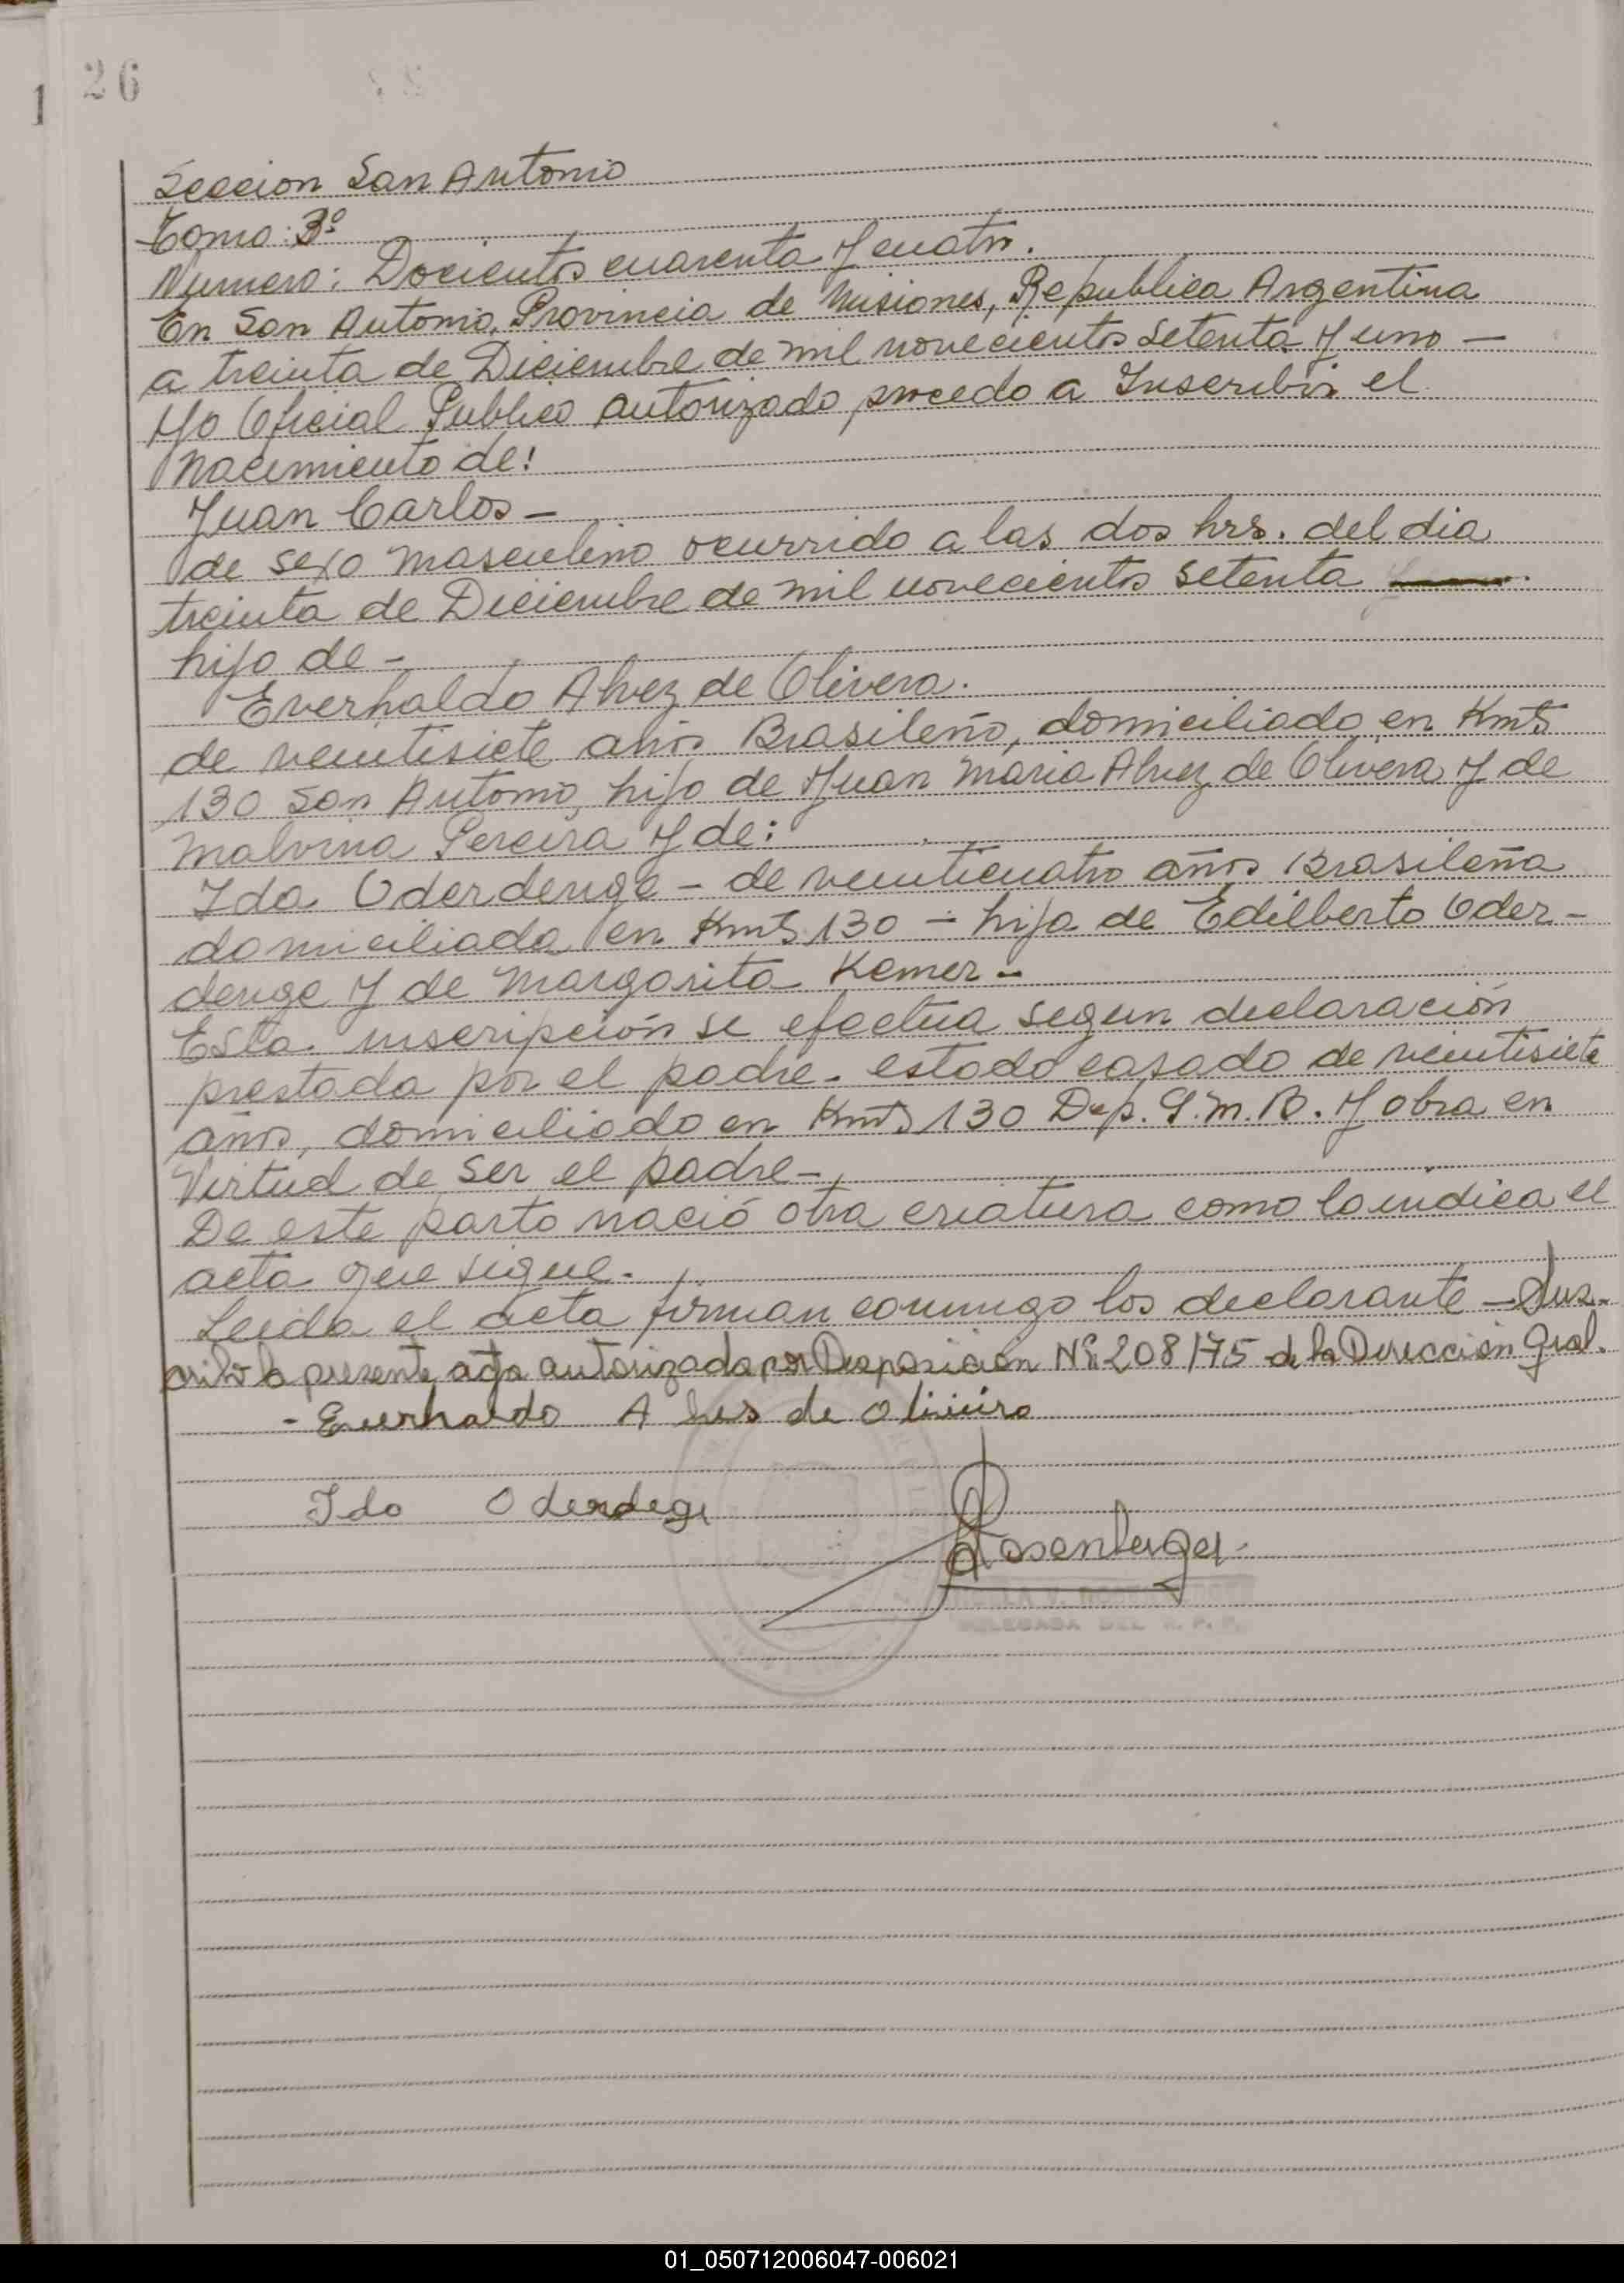 26
1
Seccion San Antonio
Tomo: 3º
Numero: Docientos cuarenta y cuatro.
En San Antonio, Provincia de Misiones, Republica Argentina
a treinta de Diciembre de mil novecientos setenta y uno —
Yo Oficial Publico autorizado procedo a Inscribir el
Nacimiento de:
Juan Carlos —
de sexo masculino ocurrido a las dos hrs. del dia
treinta de Diciembre de mil novecientos setenta
hijo de —
Everhaldo Alvez de Olivera.
de veintisiete años Brasileño, domiciliado en Kmts
130 San Antonio, hijo de Juan Maria Alvez de Olivera y de
Malvina Pereira y de:
Ida Oderdenge — de veinticuatro años Brasileña
domiciliada en Kmts 130 — hija de Edilberto Oder-
denge y de Margarita Kemer —
Esta inscripción se efectua segun declaración
prestada por el padre. estado casado de veintisiete
años, domiciliado en Kmts 130 Dep. G.M.B. y obra en
Virtud de ser el padre —
De este parto nació otra criatura como lo indica el
acta que sigue.
Leida el acta firman conmigo los declarante — Sus-
cribo la presente acta autorizada por Disposición Nº 208/75 de la Dirección Gral.
- Everhardo Alves de Oliveira
Ida Oderdege
Rosenberger
DELEGADA DEL R. P. P.
01_050712006047-006021